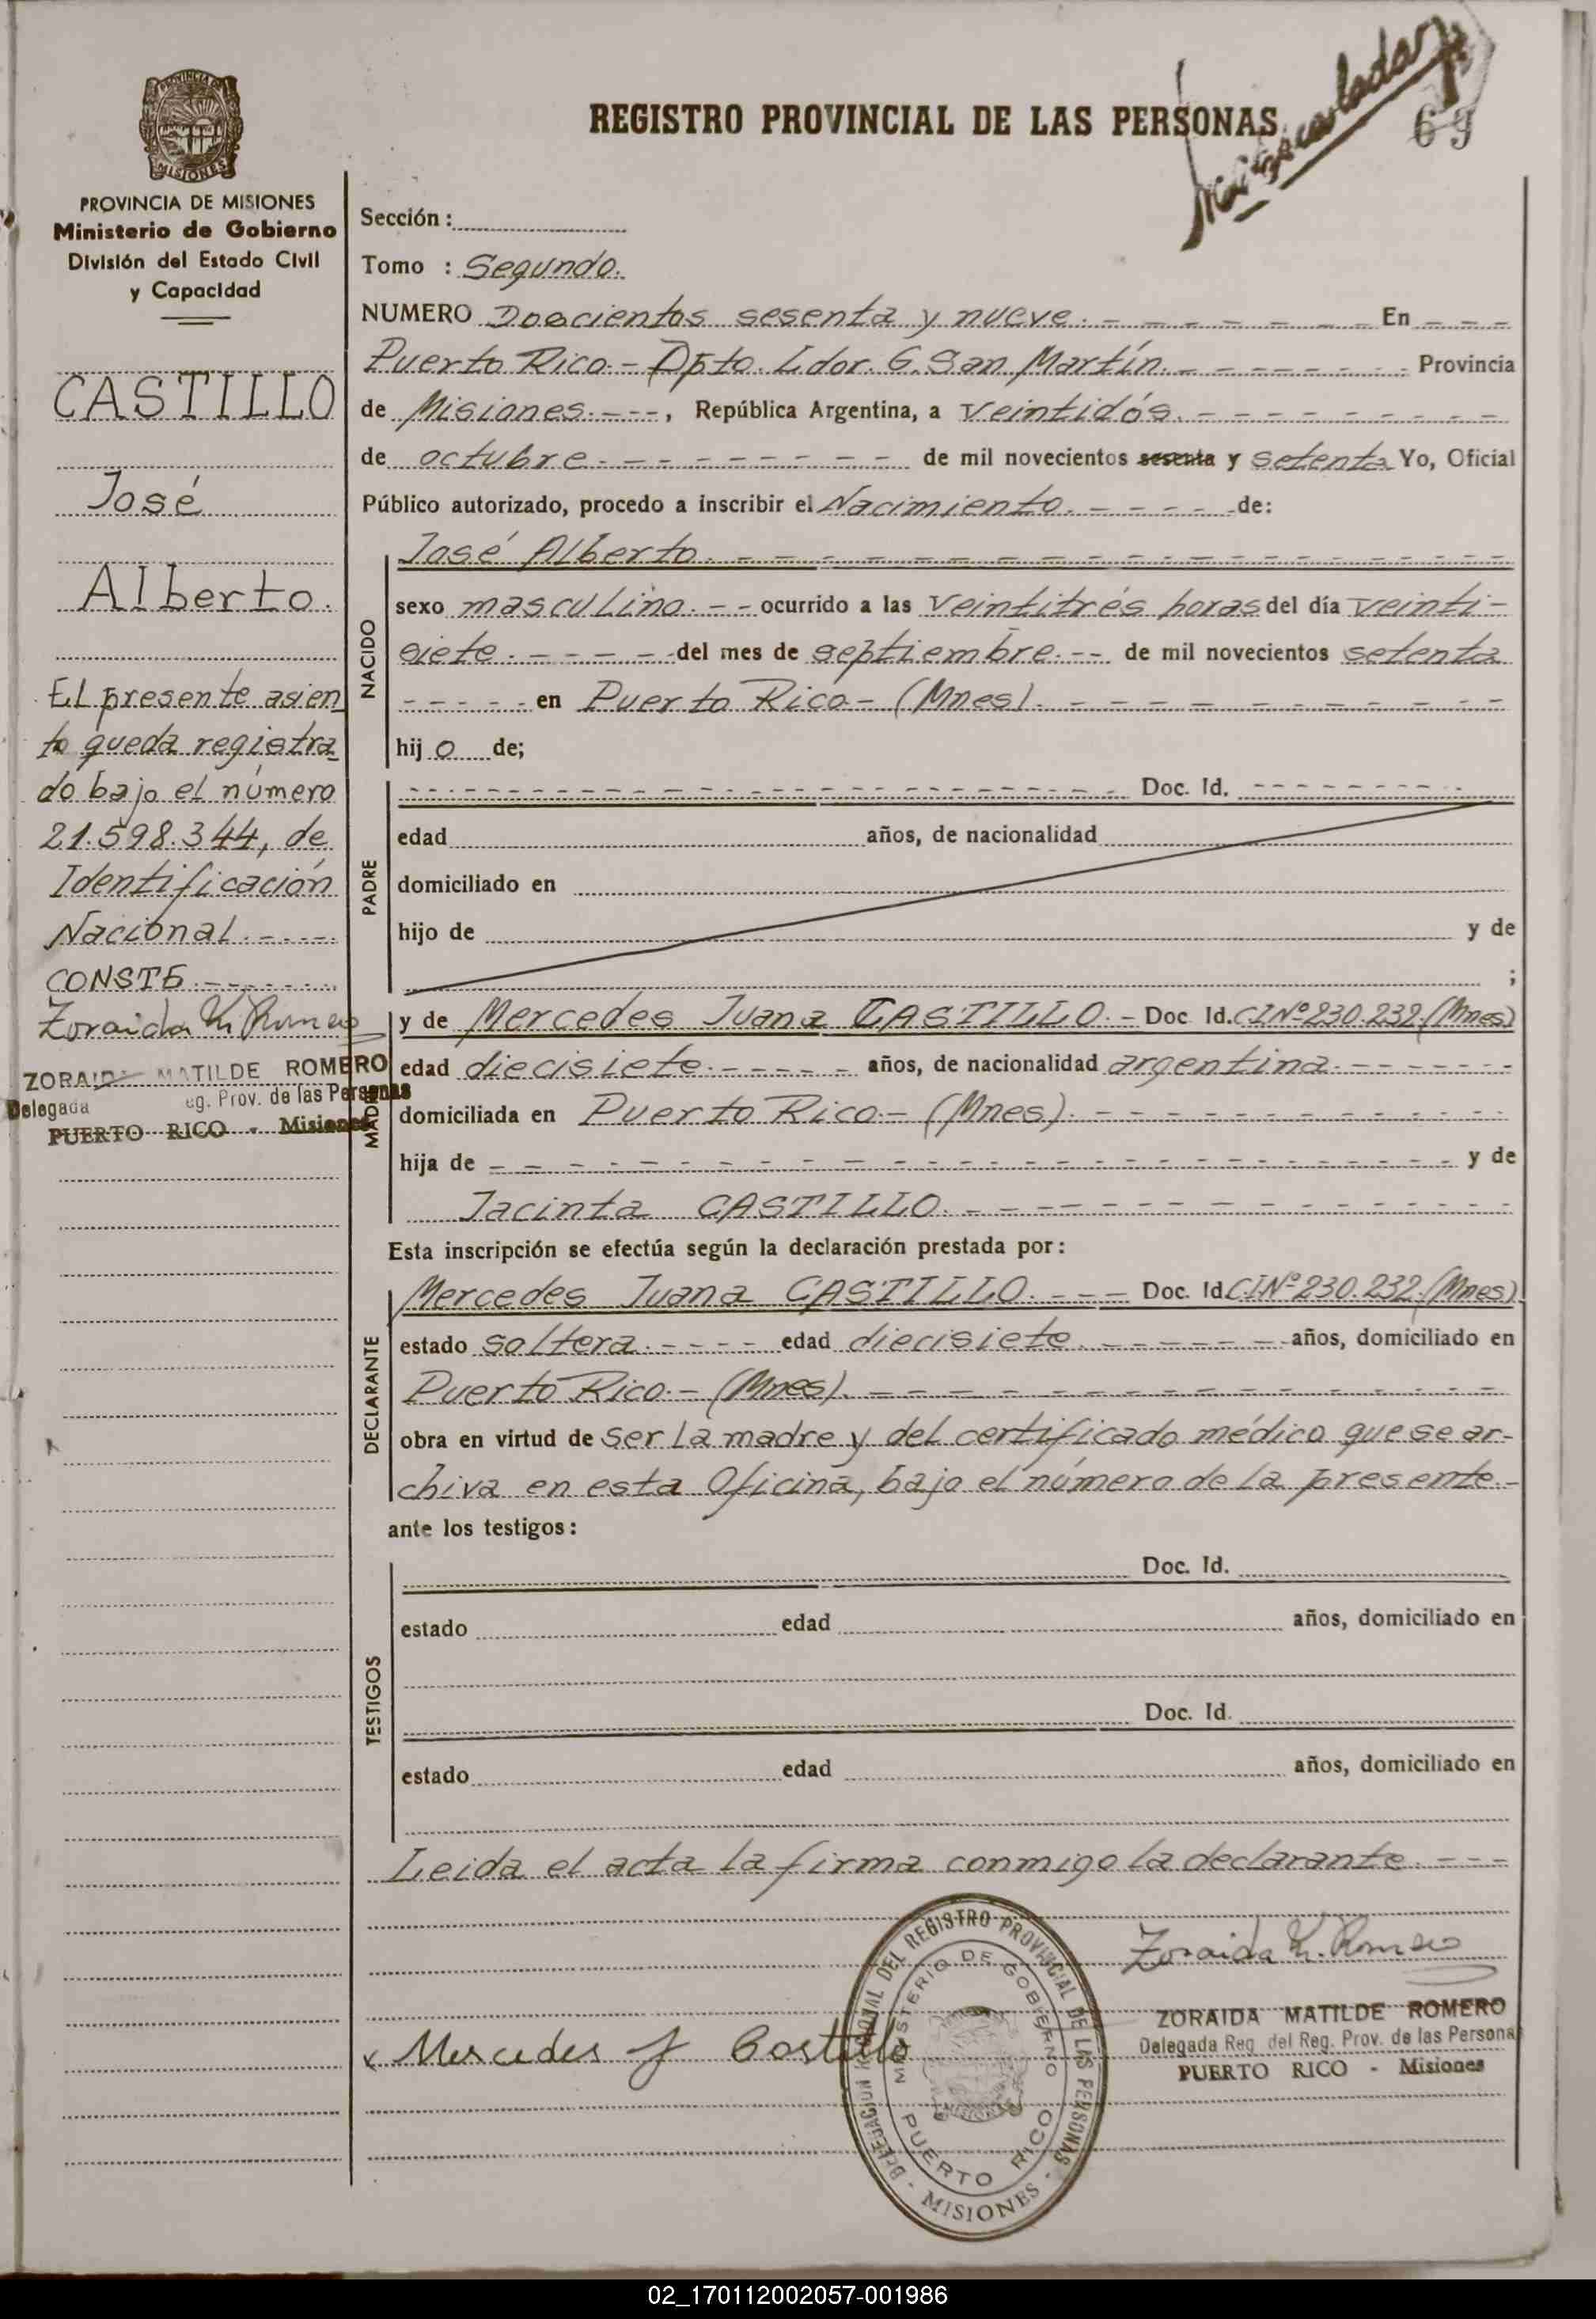 REGISTRO PROVINCIAL DE LAS PERSONAS
69
PROVINCIA DE MISIONES
Ministerio de Gobierno
División del Estado Civil
y Capacidad
CASTILLO
José
Alberto.
El presente asien
to queda registra-
do bajo el número
21.598.344, de
Identificación
Nacional.-----
CONSTE.------
ZORAIDA MATILDE ROMERO
Delegada Reg. Prov. de las Personas
PUERTO RICO - Misiones
Sección:
Tomo : Segundo.
NUMERO Doscientos sesenta y nueve.------- En ---
Puerto Rico.- Dpto. Ldor. G. San Martín.------- Provincia
de Misiones.---, República Argentina, a veintidós.---------
de octubre.--------- de mil novecientos sesenta y setenta Yo, Oficial
Público autorizado, procedo a inscribir el Nacimiento.-----de:
NACIDO
José Alberto.-----------------
sexo masculino.-- ocurrido a las veintitrés horas del día veinti-
siete.------del mes de septiembre.-- de mil novecientos setenta
----- en Puerto Rico- (Mnes).-----------
hijo de;
PADRE
-------------------- Doc. Id. ---------
edad años, de nacionalidad
domiciliado en
hijo de y de
;
MADRE
y de Mercedes Juana CASTILLO.- Doc Id. CI Nº 230.232.(Mnes)
edad diecisiete.----- años, de nacionalidad argentina.-------
domiciliada en Puerto Rico.- (Mnes).-----------
hija de -------------------- y de
Jacinta CASTILLO.--------------
Esta inscripción se efectúa según la declaración prestada por:
DECLARANTE
Mercedes Juana CASTILLO.--- Doc. Id. C.I Nº 230.232.(Mnes)
estado soltera.---- edad diecisiete.------años, domiciliado en
Puerto Rico.- (Mnes).---------------
obra en virtud de ser la madre y del certificado médico que se ar-
chiva en esta Oficina, bajo el número de la presente.-
ante los testigos:
TESTIGOS
Doc. Id.
estado edad años, domiciliado en
Doc. Id.
estado edad años, domiciliado en
Leida el acta la firma conmigo la declarante.---
Mercedes J Castillo
DELEGACION REGIONAL DEL REGISTRO PROVINCIAL DE LAS PERSONAS - MISIONES -
MINISTERIO DE GOBIERNO
PUERTO RICO
ZORAIDA MATILDE ROMERO
Delegada Reg. del Reg. Prov. de las Personas
PUERTO RICO - Misiones
02_170112002057-001986